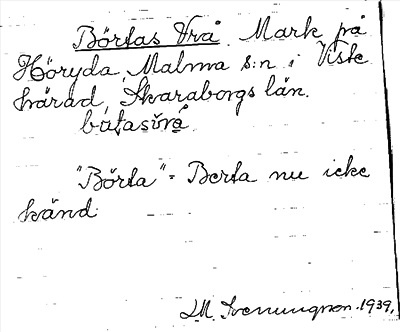 Börtas Vrå. Mark på
Höryda, Malma s:n i Viste
härad, Skaraborgs län.
"Börta" = Berta nu icke
känd.
1939.